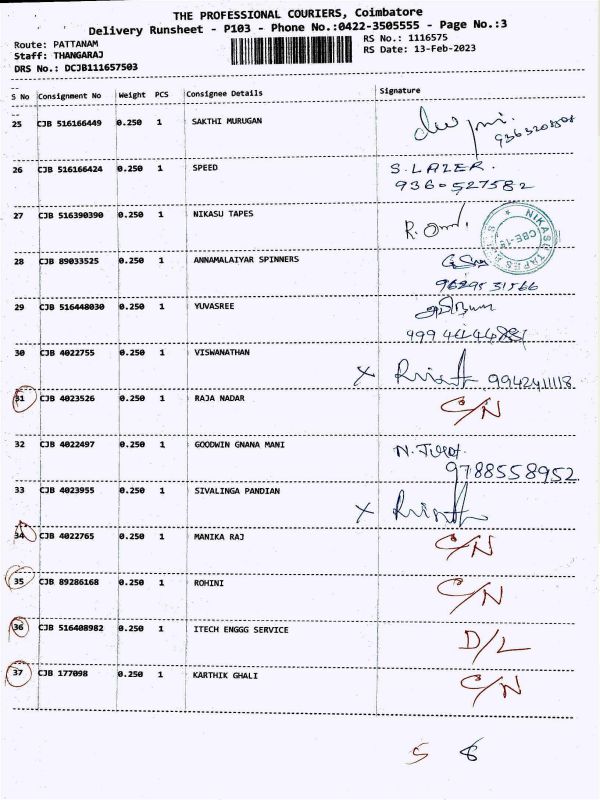 THE PROFESSIONAL COURIERS, Coimbatore
Delivery Runsheet - P103 - Phone No.:0422-3505555 - Page No.:3
Route: PATTANAM
RS No.: 1116575
Staff: THANGARAJ
RS Date: 13-Feb-2023
DRS No.: DCJB111657503
S No Consignment No Weight PCS Consignee Details Signature
25 CJB 516166449 0.250 1 SAKTHI MURUGAN
26 CJB 516166424 0.250 1 SPEED S. LAZER.
9360527582
27 CJB 516390390 0.250 1 NIKASU TAPES
NIKASU TAPES
CBE-15
28 CJB 89033525 0.250 1 ANNAMALAIYAR SPINNERS
9629531566
29 CJB 516448030 0.250 1 YUVASREE
30 CJB 4022755 0.250 1 VISWANATHAN
X 9942411118
31 CJB 4023526 0.250 1 RAJA NADAR C/N
32 CJB 4022497 0.250 1 GOODWIN GNANA MANI
9788558952
33 CJB 4023955 0.250 1 SIVALINGA PANDIAN
X
34 CJB 4022765 0.250 1 MANIKA RAJ C/N
35 CJB 89286168 0.250 1 ROHINI C/N
36 CJB 516408982 0.250 1 ITECH ENGGG SERVICE D/L
37 CJB 177098 0.250 1 KARTHIK GHALI C/N
5 8